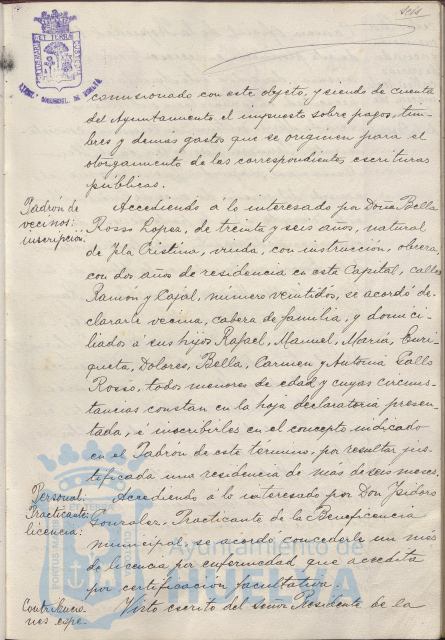 Seis
PORTUS MARIS ET TERRAE CUSTODIA
comisionado con este objeto, y siendo de cuenta
del Ayuntamiento el impuesto sobre pagos, tim-
bres y demás gastos que se originen para el
otorgamiento de las correspondientes escrituras
públicas.
Padrón de
vecinos:
inscripción.
Accediendo á lo interesado por Doña Bella
Rosso Lopez, de treinta y seis años, natural
de Isla Cristina, viuda, con instrucción, obrera,
con dos años de residencia en esta Capital, calle
Ramón y Cajal, número veintidos, se acordó de-
clararle vecina, cabeza de familia, y domici-
liados á sus hijos Rafael, Manuel, María, Enri-
queta, Dolores, Bella, Carmen y Antonia Gallo
Rosso, todos menores de edad y cuyas circuns-
tancias constan en la hoja declaratoria presen-
tada, é inscribirles en el concepto indicado
en el Padrón de este término, por resultar jus-
tificada una residencia de más de seis meses.
Personal:
Practicante:
licencia:
Accediendo á lo interesado por Don Isidoro
Gonzalez, Practicante de la Beneficencia
municipal, se acordó concederle un mes
de licencia por enfermedad que acredita
por certificación facultativa.
Contribucio-
nes espe-
Visto escrito del señor Presidente de la
Ayuntamiento de
HUELVA